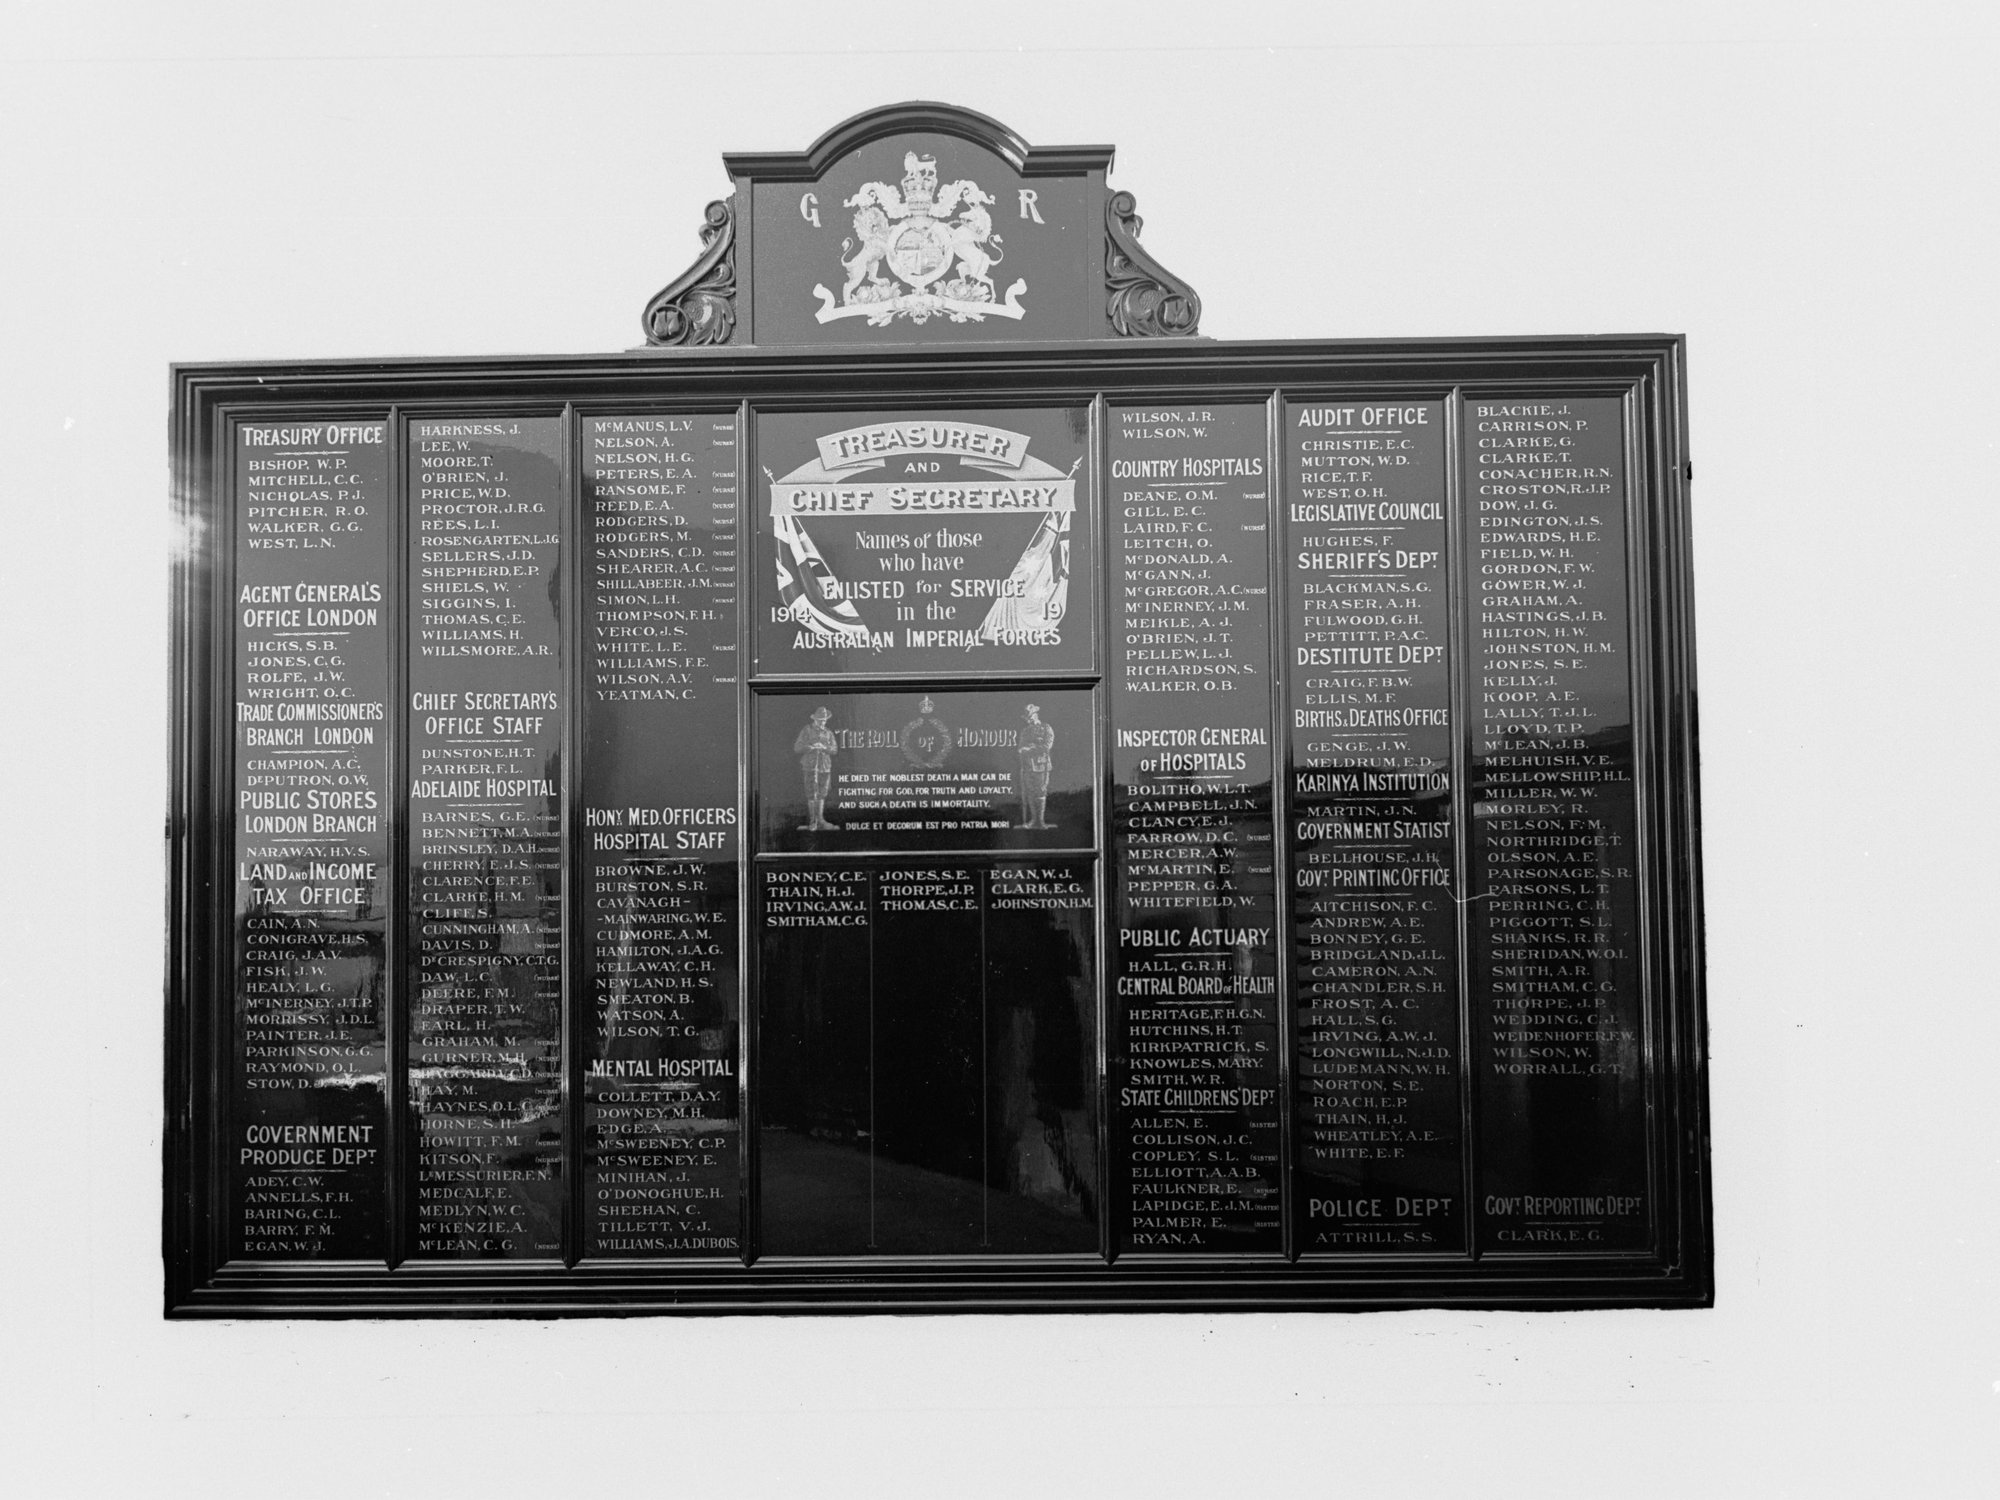 G R
TREASURY OFFICE
BISHOP, W. P.
MITCHELL, C. C.
NICHOLAS, P. J.
PITCHER, R. O.
WALKER, G. G.
WEST, L. N.
AGENT GENERAL'S
OFFICE LONDON
HICKS, S. B.
JONES, C. G.
ROLFE, J. W.
WRIGHT, O. C.
TRADE COMMISSIONER'S
BRANCH LONDON
CHAMPION, A. C.
DEPUTRON, O. W.
PUBLIC STORES
LONDON BRANCH
NARAWAY, H. V. S.
LAND AND INCOME
TAX OFFICE
CAIN, A. N.
CONIGRAVE, H. S.
CRAIG, J. A. V.
FISK, J. W.
HEALY, L. G.
McINERNEY, J. T. P.
MORRISSY, J. D. L.
PAINTER, J. E.
PARKINSON, G. G.
RAYMOND, O. L.
STOW, D.
GOVERNMENT
PRODUCE DEPT
ADEY, C. W.
ANNELLS, F. H.
BARING, C. L.
BARRY, F. M.
EGAN, W. J.
HARKNESS, J.
LEE, W.
MOORE, T.
O'BRIEN, J.
PRICE, W. D.
PROCTOR, J. R. G.
REES, L. I.
ROSENGARTEN, L. J. G.
SELLERS, J. D.
SHEPHERD, E. P.
SHIELS, W.
SIGGINS, I.
THOMAS, C. E.
WILLIAMS, H.
WILLSMORE, A. R.
CHIEF SECRETARY'S
OFFICE STAFF
DUNSTONE, H. T.
PARKER, F. L.
ADELAIDE HOSPITAL
BARNES, G. E. (NURSE)
BENNETT, M. A. (NURSE)
BRINSLEY, D. A. H. (NURSE)
CHERRY, E. J. S. (NURSE)
CLARENCE, F. E.
CLARKE, H. M. (NURSE)
CLIFF, S.
CUNNINGHAM, A. (NURSE)
DAVIS, D. (NURSE)
DeCRESPIGNY, C. T. G.
DAW, L. C. (NURSE)
DEERE, F. M. (NURSE)
DRAPER, T. W.
EARL, H.
GRAHAM, M. (NURSE)
GURNER, M. H. (NURSE)
HAGGARD, C. D. (NURSE)
HAY, M. (NURSE)
HAYNES, O. L. C. (NURSE)
HORNE, S. H.
HOWITT, F. M. (NURSE)
KITSON, F. (NURSE)
LeMESSURIER, F. N.
MEDCALF, E.
MEDLYN, W. C.
McKENZIE, A.
McLEAN, C. G. (NURSE)
McMANUS, L. V. (NURSE)
NELSON, A. (NURSE)
NELSON, H. G.
PETERS, E. A. (NURSE)
RANSOME, F. (NURSE)
REED, E. A. (NURSE)
RODGERS, D. (NURSE)
RODGERS, M. (NURSE)
SANDERS, C. D. (NURSE)
SHEARER, A. C. (NURSE)
SHILLABEER, J. M. (NURSE)
SIMON, L. H. (NURSE)
THOMPSON, F. H.
VERCO, J. S.
WHITE, L. E. (NURSE)
WILLIAMS, F. E.
WILSON, A. V. (NURSE)
YEATMAN, C.
HONY MED. OFFICERS
HOSPITAL STAFF
BROWNE, J. W.
BURSTON, S. R.
CAVANAGH-
-MAINWARING, W. E.
CUDMORE, A. M.
HAMILTON, J. A. G.
KELLAWAY, C. H.
NEWLAND, H. S.
SMEATON, B.
WATSON, A.
WILSON, T. G.
MENTAL HOSPITAL
COLLETT, D. A. Y.
DOWNEY, M. H.
EDGE, A.
McSWEENEY, C. P.
McSWEENEY, E.
MINIHAN, J.
O'DONOGHUE, H.
SHEEHAN, C.
TILLETT, V. J.
WILLIAMS, J. A. DUBOIS.
TREASURER
AND
CHIEF SECRETARY
Names of those
who have
ENLISTED for SERVICE
1914 in the 19
AUSTRALIAN IMPERIAL FORCES
THE ROLL OF HONOUR
HE DIED THE NOBLEST DEATH A MAN CAN DIE
FIGHTING FOR GOD, FOR TRUTH AND LOYALTY,
AND SUCH A DEATH IS IMMORTALITY.
DULCE ET DECORUM EST PRO PATRIA MORI
BONNEY, C. E.
THAIN, H. J.
IRVING, A. W. J.
SMITHAM, C. G.
JONES, S. E.
THORPE, J. P.
THOMAS, C. E.
EGAN, W. J.
CLARK, E. G.
JOHNSTON, H. M.
WILSON, J. R.
WILSON, W.
COUNTRY HOSPITALS
DEANE, O. M. (NURSE)
GILL, E. C.
LAIRD, F. C. (NURSE)
LEITCH, O.
McDONALD, A.
McGANN, J.
McGREGOR, A. C. (NURSE)
McINERNEY, J. M.
MEIKLE, A. J.
O'BRIEN, J. T.
PELLEW, L. J.
RICHARDSON, S.
WALKER, O. B.
INSPECTOR GENERAL
OF HOSPITALS
BOLITHO, W. L. T.
CAMPBELL, J. N.
CLANCY, E. J.
FARROW, D. C. (NURSE)
MERCER, A. W.
McMARTIN, E. (NURSE)
PEPPER, G. A.
WHITEFIELD, W.
PUBLIC ACTUARY
HALL, G. R. H.
CENTRAL BOARD OF HEALTH
HERITAGE, F. H. G. N.
HUTCHINS, H. T.
KIRKPATRICK, S.
KNOWLES, MARY.
SMITH, W. R.
STATE CHILDRENS' DEPT
ALLEN, E. (SISTER)
COLLISON, J. C.
COPLEY, S. L. (SISTER)
ELLIOTT, A. A. B.
FAULKNER, E. (NURSE)
LAPIDGE, E. J. M. (SISTER)
PALMER, E. (SISTER)
RYAN, A.
AUDIT OFFICE
CHRISTIE, E. C.
MUTTON, W. D.
RICE, T. F.
WEST, O. H.
LEGISLATIVE COUNCIL
HUGHES, F.
SHERIFF'S DEPT
BLACKMAN, S. G.
FRASER, A. H.
FULWOOD, G. H.
PETTITT, P. A. C.
DESTITUTE DEPT
CRAIG, F. B. W.
ELLIS, M. F.
BIRTHS & DEATHS OFFICE
GENGE, J. W.
MELDRUM, E. D.
KARINYA INSTITUTION
MARTIN, J. N.
GOVERNMENT STATIST
BELLHOUSE, J. H.
GOVT PRINTING OFFICE
AITCHISON, F. C.
ANDREW, A. E.
BONNEY, G. E.
BRIDGLAND, J. L.
CAMERON, A. N.
CHANDLER, S. H.
FROST, A. C.
HALL, S. G.
IRVING, A. W. J.
LONGWILL, N. J. D.
LUDEMANN, W. H.
NORTON, S. E.
ROACH, E. P.
THAIN, H. J.
WHEATLEY, A. E.
WHITE, E. F.
POLICE DEPT
ATTRILL, S. S.
BLACKIE, J.
CARRISON, P.
CLARKE, G.
CLARKE, T.
CONACHER, R. N.
CROSTON, R. J. P.
DOW, J. G.
EDINGTON, J. S.
EDWARDS, H. E.
FIELD, W. H.
GORDON, F. W.
GOWER, W. J.
GRAHAM, A.
HASTINGS, J. B.
HILTON, H. W.
JOHNSTON, H. M.
JONES, S. E.
KELLY, J.
KOOP, A. E.
LALLY, T. J. L.
LLOYD, T. P.
McLEAN, J. B.
MELHUISH, V. E.
MELLOWSHIP, H. L.
MILLER, W. W.
MORLEY, R.
NELSON, F. M.
NORTHRIDGE, T.
OLSSON, A. E.
PARSONAGE, S. R.
PARSONS, L. T.
PERRING, C. H.
PIGGOTT, S. L.
SHANKS, R. R.
SHERIDAN, W. O. I.
SMITH, A. R.
SMITHAM, C. G.
THORPE, J. P.
WEDDING, C. J.
WEIDENHOFER, F. W.
WILSON, W.
WORRALL, G. T.
GOVT REPORTING DEPT
CLARK, E. G.